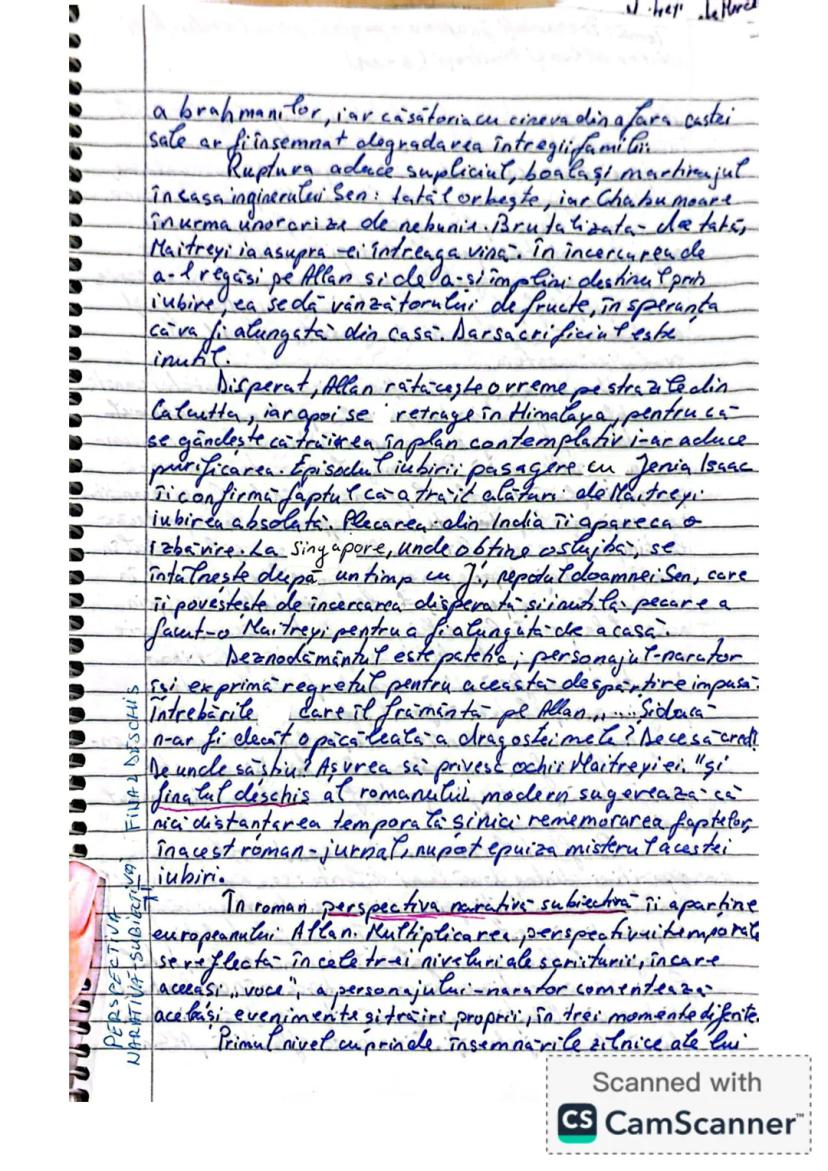 a brahmanilor, iar căsătoria cu cineva din afara castei
sale ar fi însemnat degradarea întregii familii.
Ruptura aduce supliciul, boala și martirajul
în casa inginerului Sen: tatăl orbește, iar Chabu moare
în urma unor crize de nebunie. Brutalizată de tată,
Maitreyi ia asupra-ei întreaga vină. În încercarea de
a-l regăsi pe Allan si de a-si împlini destinul prin
iubire, ea se dă vânzătorului de fructe, în speranța
că va fi alungată din casă. Dar sacrificiul este
inutil.
Disperat, Allan rătăcește o vreme pe strazile din
Calcutta, iar apoi se retrage în Himalaya, pentru că
se gândește că trăirea în plan contemplativ i-ar aduce
purificarea. Episodul iubirii pasagere cu Jenia Isaac
îi confirmă faptul că a trăit alături de Maitreyi
iubirea absolută. Plecarea din India îi apare ca o
izbăvire. La Singapore, unde obține o slujbă, se
întâlnește după un timp cu J, nepotul doamnei Sen, care
îi povestește de încercarea disperată si inutilă pe care a
facut-o Maitreyi pentru a fi alungată de acasă.
Deznodământul este patetic; personajul-narator
își exprimă regretul pentru această despărțire impusă.
Întrebările care îl frământă pe Allan „... Și dacă
n-ar fi decât o păcăleală a dragostei mele? De ce să cred?
De unde să știu? Aș vrea să privesc ochii Maitreyiei." și
finalul deschis al romanului modern sugerează că
nici distanțarea temporală și nici rememorarea faptelor,
în acest roman-jurnal, nu pot epuiza misterul acestei
iubiri.
FINAL DESCHIS
În roman perspectiva narativă subiectivă îi aparține
europeanului Allan. Multiplicarea perspectivei temporale
se reflectă în cele trei niveluri ale scriiturii, în care
aceeași „voce", a personajului-narator comentează
aceleași evenimente și trăiri proprii, în trei momente diferite.
Primul nivel cuprinde însemnările zilnice ale lui
PERSPECTIVA
NARATIVĂ SUBIECTIVĂ
Scanned with
CS CamScanner™